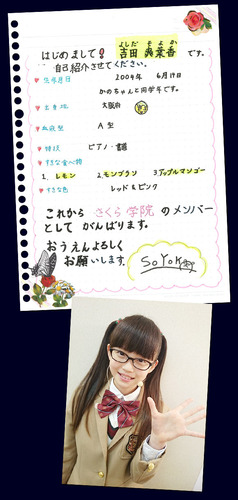 はじめまして!
よしだ そよか
吉田 爽葉香 です。
自己紹介させてください。
生年月日
2004年 6月17日
かのちゃんと同学年です。
出身地
大阪府
血液型
A型
特技
ピアノ・書道
すきな食べ物
1. レモン 2. モンブラン 3. アップルマンゴー
すきな色
レッド&ピンク
これから さくら学院 のメンバー
として がんばります。
おうえんよろしく
お願いします。
SOYOKA